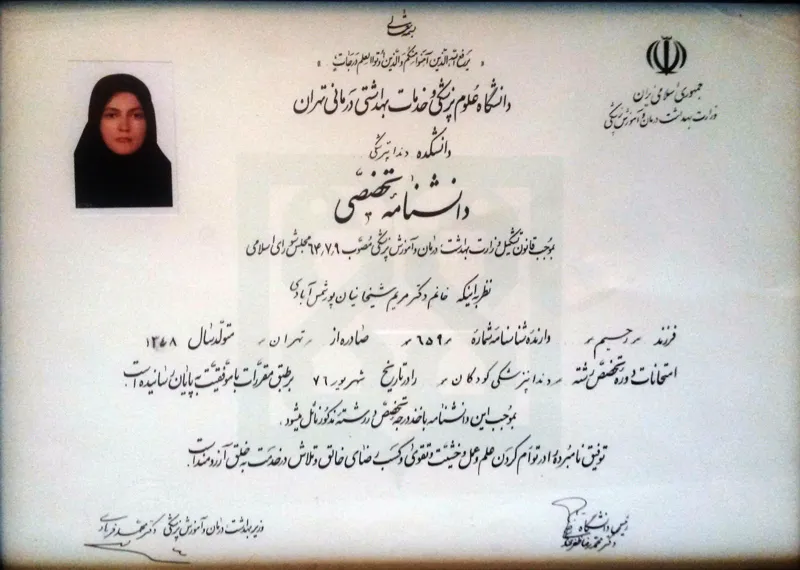 بسمه تعالی
« یرفع الله الذین آمنوا منکم والذین اوتوا العلم درجات »
جمهوری اسلامی ایران
وزارت بهداشت درمان و آموزش پزشکی
دانشگاه علوم پزشکی و خدمات بهداشتی درمانی تهران
دانشکده دندانپزشکی
دانشنامه تخصصی
بموجب قانون تشکیل وزارت بهداشت، درمان و آموزش پزشکی مصوب ۶۴٫۷٫۹ مجلس شورای اسلامی
نظر به اینکه خانم دکتر مریم شیخانیان پور شمس آبادی
فرزند رحیم دارنده شناسنامه شماره ۶۵۹ صادره از تهران متولد سال ۱۳۳۸
امتحانات دوره تخصصی رشته دندانپزشکی کودکان را در تاریخ شهریور ۷۶ برطبق مقررات با موفقیت به پایان رسانیده است.
بموجب این دانشنامه با اخذ درجه تخصصی در رشته مذکور نائل میشود.
توفیق نامبرده را در توأم کردن علم و عمل و خشیت و تقوی و کسب رضای خالق و تلاش در خدمت به خلق آرزومند است.
رئیس دانشگاه
دکتر محمدرضا ظفرقندی
وزیر بهداشت درمان و آموزش پزشکی دکتر محمد فرهادی